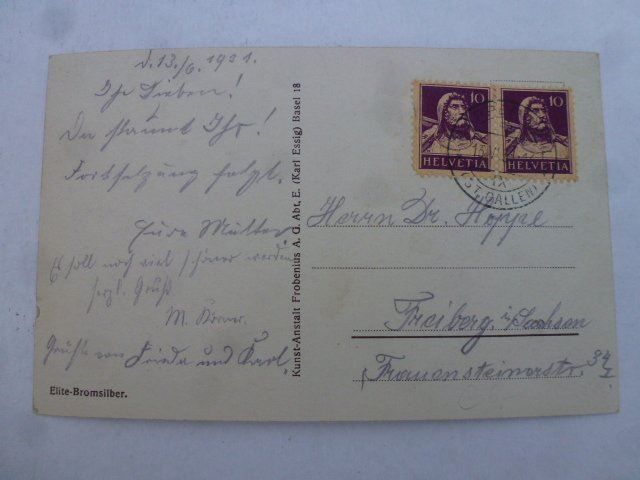 d. 13./6. 1931.
Ihr Lieben!
Da staunt Ihr!
Fortsetzung folgt.
Eure Mutter
Es soll noch viel schöner werden
herzl. Gruß
M.
Grüße von Frieda und Karl.
Elite-Bromsilber.
Kunst-Anstalt Frobenius A. G. Abt. E. (Karl Essig) Basel 18
10
HELVETIA
10
HELVETIA
(ST. GALLEN)
Herrn Dr. Hoppe
Freiberg i/Sachsen
Frauensteinerstr. 34 I